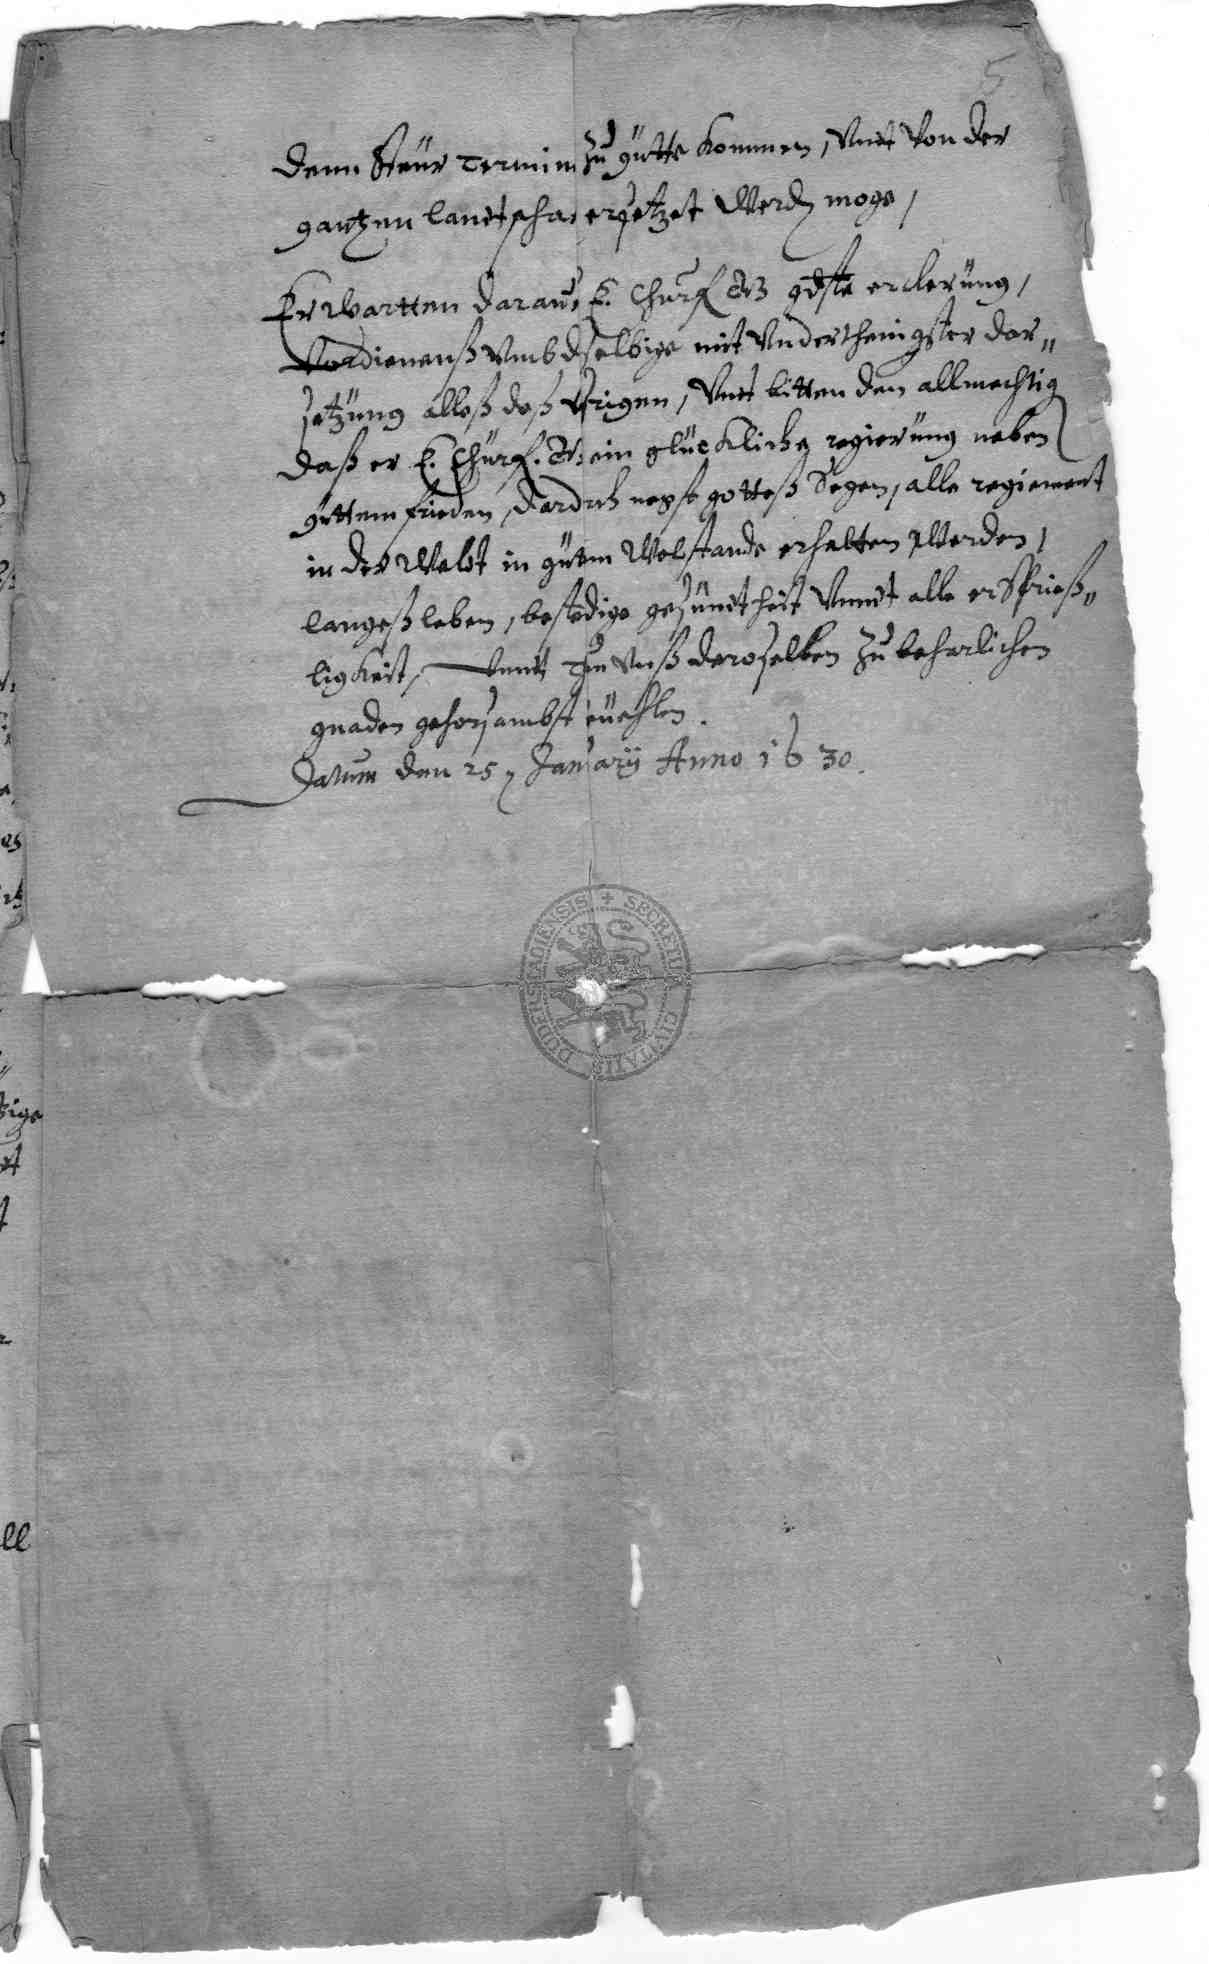 5
denn Steur Termin zu gutte kommen, Vnnt Von der
gantzen landtscha ersetzet Werden moge,
Erwartten darauf E. Churf. Gn gdste erclerung,
Verdienenß Vmb dselbige mit Vnderthenigster dar„
setzung alleß deß Vnsrigen, Vnnt bitten den allmechtig
daß er E. Churf. Gn: ein glückliche regierung neben
guttem frieden, dardurch nepst gotteß Segen, alle regiement
in der Weldt in gutem Wolstande erhalten Werden,
langeß leben, bestedige gesundtheit Vnndt alle erSprieß„
ligkeit, Vnndt Thun Vnß deroselben zu beharlichen
gnaden gehorsambst euehlen.
Datum den 25 January Anno 1630.
SECRETUM CIVITATIS DUDERSTADIENSIS